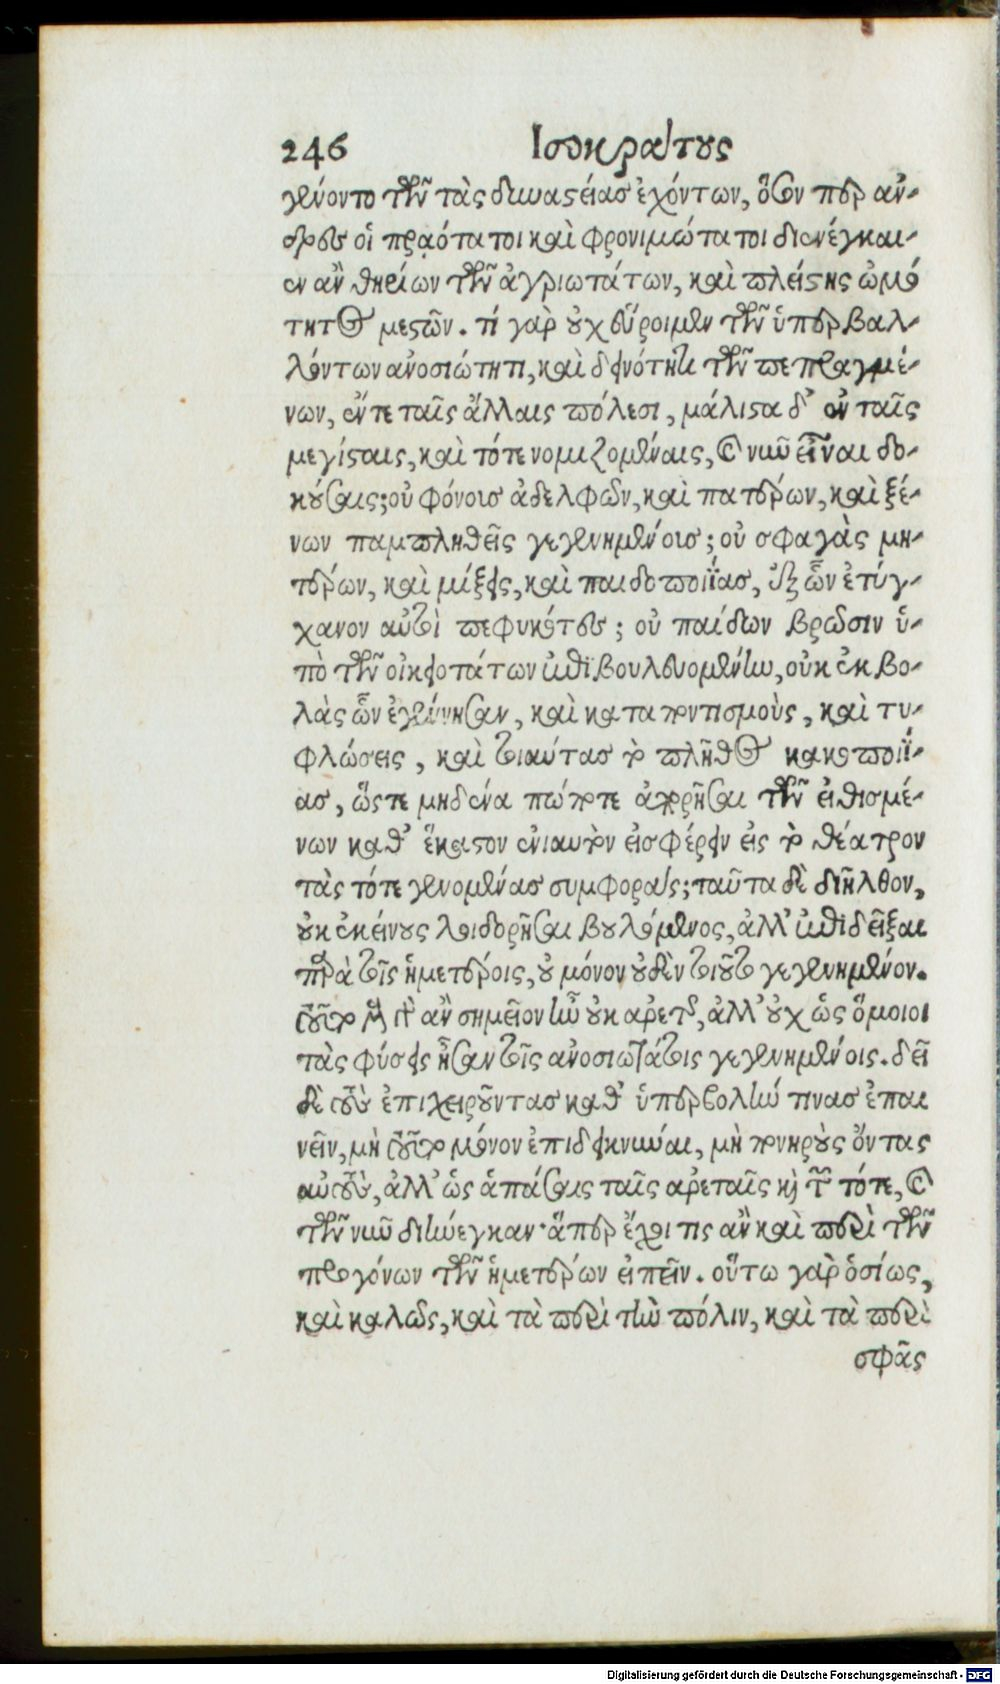 246 Ἰσοκράτους
γένοντο τῶν τὰς δυναστείας ἐχόντων, ὅσον περ ἄν-
δρες οἱ πραότατοι καὶ φρονιμώτατοι διενέγκαι-
εν ἂν θηρίων τῶν ἀγριωτάτων, καὶ πλείστης ὠμό
τητος μεστῶν. τί γὰρ οὐχ εὕροιμεν τῶν ὑπερβαλ-
λόντων ἀνοσιότητι, καὶ δεινότητι τῶν πεπραγμέ-
νων, ἔν τε ταῖς ἄλλαις πόλεσι, μάλιστα δ' ἐν ταῖς
μεγίσταις, καὶ τότε νομιζομέναις, καὶ νῦν εἶναι δο-
κούσαις; οὐ φόνοις ἀδελφῶν, καὶ πατέρων, καὶ ξέ-
νων παμπληθεῖς γεγενημένοις; οὐ σφαγὰς μη-
τέρων, καὶ μίξεις, καὶ παιδοποιΐας, ἐξ ὧν ἐτύγ-
χανον αὐτοὶ πεφυκότες; οὐ παίδων βρῶσιν ὑ-
πὸ τῶν οἰκειοτάτων ἐπιβουλευομένην, οὐκ ἐκβο-
λὰς ὧν ἐγέννησαν, καὶ καταποντισμοὺς, καὶ τυ-
φλώσεις, καὶ τοιαύτας τὸ πλῆθος κακοποιΐ-
ας, ὥστε μηδένα πώποτε ἀπορῆσαι τῶν εἰθισμέ-
νων καθ' ἕκαστον ἐνιαυτὸν εἰσφέρειν εἰς τὸ θέατρον
τὰς τότε γενομένας συμφοράς; ταῦτα δὲ διῆλθον,
οὐκ ἐκείνους λοιδορῆσαι βουλόμενος, ἀλλ' ἐπιδεῖξαι
παρὰ τοῖς ἡμετέροις, οὐ μόνον οὐδὲν τοιοῦτο γεγενημένον.
τοῦτο μὲν γὰρ ἂν σημεῖον ἦν οὐκ ἀρετῆς, ἀλλ' οὐχ ὡς ὅμοιοι
τὰς φύσεις ἦσαν τοῖς ἀνοσιωτάτοις γεγενημένοις. δεῖ
δὲ τοὺς ἐπιχειροῦντας καθ' ὑπερβολήν τινας ἐπαι
νεῖν, μὴ τοῦτο μόνον ἐπιδεικνύναι, μὴ πονηροὺς ὄντας
αὐτοὺς, ἀλλ' ὡς ἁπάσαις ταῖς ἀρεταῖς καὶ τῶν τότε, καὶ
τῶν νῦν διήνεγκαν· ἅπερ ἔχοι τις ἂν καὶ περὶ τῶν
προγόνων τῶν ἡμετέρων εἰπεῖν. οὕτω γὰρ ὁσίως,
καὶ καλῶς, καὶ τὰ περὶ τὴν πόλιν, καὶ τὰ περὶ
σφᾶς
Digitalisierung gefördert durch die Deutsche Forschungsgemeinschaft - DFG